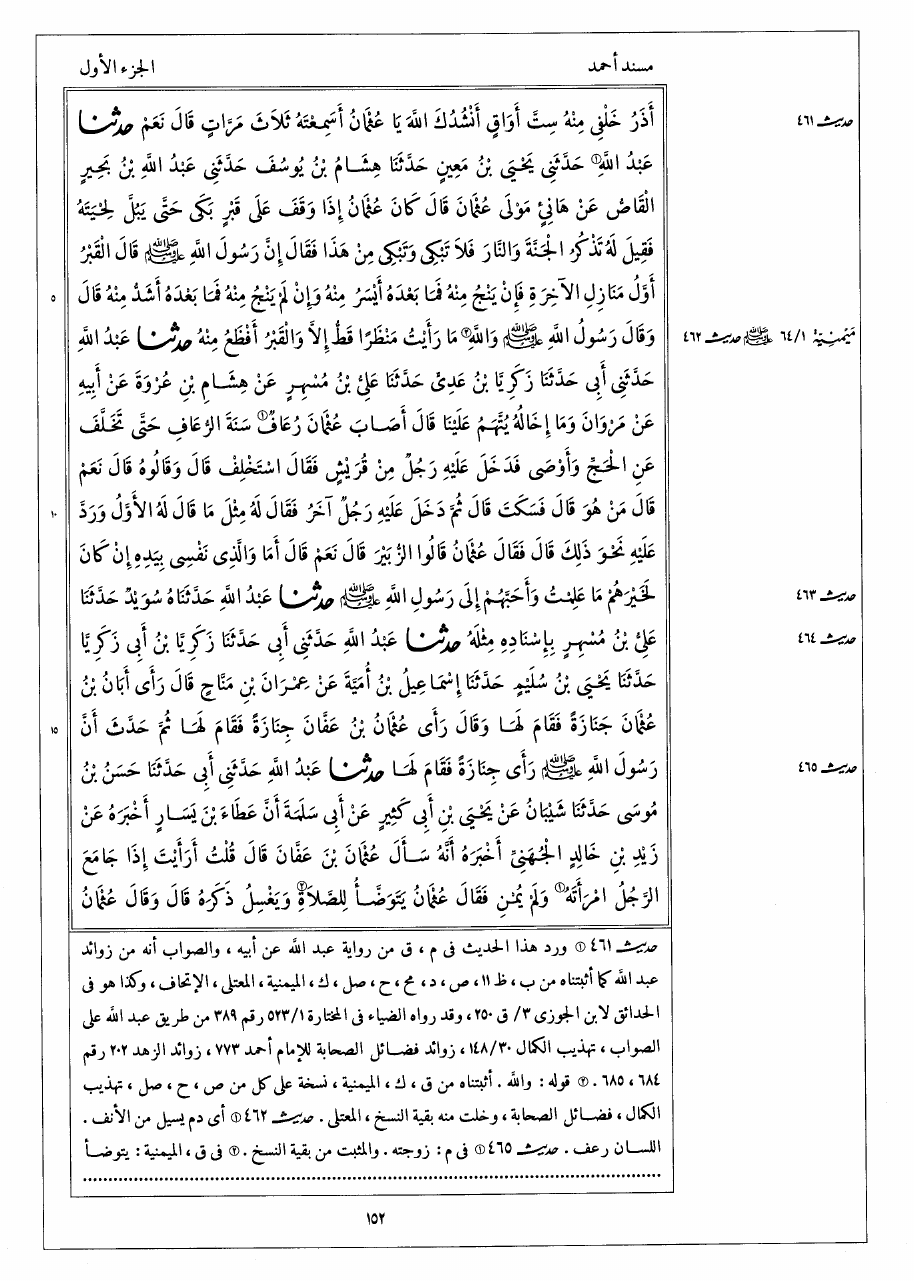 مسند أحمد
الجزء الأول
أَذَرُ خَلْفِي مِنْهُ سِتَّ أَوَاقٍ أَنْشُدُكَ اللَّهَ يَا عُثْمَانُ أَسَمِعْتَهُ ثَلَاثَ مَرَّاتٍ قَالَ نَعَمْ حدثنا
حديث ٤٦١
عَبْدُ اللَّهِ① حَدَّثَنِي يَحْيَى بْنُ مَعِينٍ حَدَّثَنَا هِشَامُ بْنُ يُوسُفَ حَدَّثَنِي عَبْدُ اللَّهِ بْنُ بَحِيرٍ
الْقَاصُّ عَنْ هَانِئٍ مَوْلَى عُثْمَانَ قَالَ كَانَ عُثْمَانُ إِذَا وَقَفَ عَلَى قَبْرٍ بَكَى حَتَّى يَبُلَّ لِحْيَتَهُ
فَقِيلَ لَهُ تَذْكُرُ الْجَنَّةَ وَالنَّارَ فَلاَ تَبْكِي وَتَبْكِي مِنْ هَذَا فَقَالَ إِنَّ رَسُولَ اللَّهِ ﷺ قَالَ الْقَبْرُ
أَوَّلُ مَنَازِلِ الآخِرَةِ فَإِنْ يَنْجُ مِنْهُ فَمَا بَعْدَهُ أَيْسَرُ مِنْهُ وَإِنْ لَمْ يَنْجُ مِنْهُ فَمَا بَعْدَهُ أَشَدُّ مِنْهُ قَالَ
٥
وَقَالَ رَسُولُ اللَّهِ ﷺ وَاللَّهِ② مَا رَأَيْتُ مَنْظَرًا قَطُّ إِلاَّ وَالْقَبْرُ أَفْظَعُ مِنْهُ حدثنا عَبْدُ اللَّهِ
مَيْمَنِيَّة ٦٤/١ ﷺ حديث ٤٦٢
حَدَّثَنِي أَبِي حَدَّثَنَا زَكَرِيَّا بْنُ عَدِيٍّ حَدَّثَنَا عَلِيُّ بْنُ مُسْهِرٍ عَنْ هِشَامِ بْنِ عُرْوَةَ عَنْ أَبِيهِ
عَنْ مَرْوَانَ وَمَا إِخَالُهُ يُتَّهَمُ عَلَيْنَا قَالَ أَصَابَ عُثْمَانَ رُعَافٌ① سَنَةَ الرُّعَافِ حَتَّى تَخَلَّفَ
عَنِ الْحَجِّ وَأَوْصَى فَدَخَلَ عَلَيْهِ رَجُلٌ مِنْ قُرَيْشٍ فَقَالَ اسْتَخْلِفْ قَالَ وَقَالُوهُ قَالَ نَعَمْ
قَالَ مَنْ هُوَ قَالَ فَسَكَتَ قَالَ ثُمَّ دَخَلَ عَلَيْهِ رَجُلٌ آخَرُ فَقَالَ لَهُ مِثْلَ مَا قَالَ لَهُ الأَوَّلُ وَرَدَّ
١٠
عَلَيْهِ نَحْوَ ذَلِكَ قَالَ فَقَالَ عُثْمَانُ قَالُوا الزُّبَيْرَ قَالَ نَعَمْ قَالَ أَمَا وَالَّذِي نَفْسِي بِيَدِهِ إِنْ كَانَ
لَخَيْرَهُمْ مَا عَلِمْتُ وَأَحَبَّهُمْ إِلَى رَسُولِ اللَّهِ ﷺ حدثنا عَبْدُ اللَّهِ حَدَّثَنَاهُ سُوَيْدٌ حَدَّثَنَا
حديث ٤٦٣
عَلِيُّ بْنُ مُسْهِرٍ بِإِسْنَادِهِ مِثْلَهُ حدثنا عَبْدُ اللَّهِ حَدَّثَنِي أَبِي حَدَّثَنَا زَكَرِيَّا بْنُ أَبِي زَكَرِيَّا
حديث ٤٦٤
حَدَّثَنَا يَحْيَى بْنُ سُلَيْمٍ حَدَّثَنَا إِسْمَاعِيلُ بْنُ أُمَيَّةَ عَنْ عِمْرَانَ بْنِ مَنَّاحٍ قَالَ رَأَى أَبَانُ بْنُ
عُثْمَانَ جَنَازَةً فَقَامَ لَهَا وَقَالَ رَأَى عُثْمَانُ بْنُ عَفَّانَ جِنَازَةً فَقَامَ لَهَا ثُمَّ حَدَّثَ أَنَّ
١٥
رَسُولَ اللَّهِ ﷺ رَأَى جِنَازَةً فَقَامَ لَهَا حدثنا عَبْدُ اللَّهِ حَدَّثَنِي أَبِي حَدَّثَنَا حَسَنُ بْنُ
حديث ٤٦٥
مُوسَى حَدَّثَنَا شَيْبَانُ عَنْ يَحْيَى بْنِ أَبِي كَثِيرٍ عَنْ أَبِي سَلَمَةَ أَنَّ عَطَاءَ بْنَ يَسَارٍ أَخْبَرَهُ عَنْ
زَيْدِ بْنِ خَالِدٍ الْجُهَنِيِّ أَخْبَرَهُ أَنَّهُ سَأَلَ عُثْمَانَ بْنَ عَفَّانَ قَالَ قُلْتُ أَرَأَيْتَ إِذَا جَامَعَ
الرَّجُلُ امْرَأَتَهُ① وَلَمْ يُمْنِ فَقَالَ عُثْمَانُ يَتَوَضَّأُ لِلصَّلاَةِ② وَيَغْسِلُ ذَكَرَهُ قَالَ وَقَالَ عُثْمَانُ
حديث ٤٦١ ① ورد هذا الحديث في م ، ق من رواية عبد الله عن أبيه ، والصواب أنه من زوائد
عبد الله كما أثبتناه من ب ، ظ ١١ ، ص ، د ، مح ، ح ، صل ، ك ، الميمنية ، المعتلى ، الإتحاف ، وكذا هو في
الحدائق لابن الجوزي ٣/ ق ٢٥٠ ، وقد رواه الضياء في المختارة ٥٢٣/١ رقم ٣٨٩ من طريق عبد الله على
الصواب ، تهذيب الكمال ١٤٨/٣٠ ، زوائد فضائل الصحابة للإمام أحمد ٧٧٣ ، زوائد الزهد ٢٠٢ رقم
٦٨٤ ، ٦٨٥ . ② قوله : والله . أثبتناه من ق ، ك ، الميمنية ، نسخة على كل من ص ، ح ، صل ، تهذيب
الكمال ، فضائل الصحابة ، وخلت منه بقية النسخ ، المعتلى . حديث ٤٦٢ ① أي دم يسيل من الأنف .
اللسان رعف . حديث ٤٦٥ ① في م : زوجته . والمثبت من بقية النسخ . ② في ق ، الميمنية : يتوضأ
١٥٢